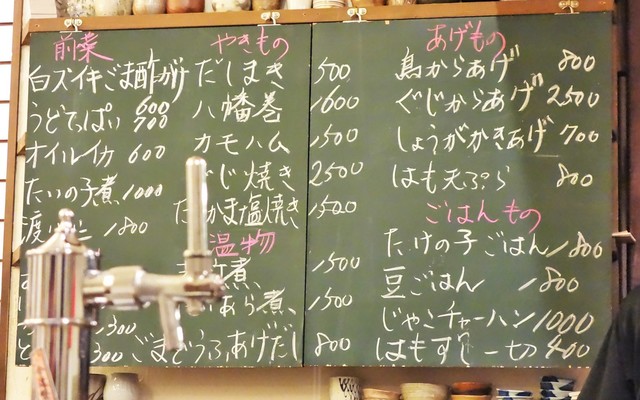 前菜
白ズイキごま酢がけ
600
うどてっぱい 700
オイルイカ 600
たいの子煮 1000
渡り 1800
1300
300
やきもの
だしまき 500
八幡巻 1600
カモハム 1500
ぐじ焼き 2500
かま塩焼き 1500
温物
煮 1500
あら煮 1500
ごまどうふあげだし 800
あげもの
鳥からあげ 800
ぐじからあげ 2500
しょうがかきあげ 700
はも天ぷら 800
ごはんもの
たけの子ごはん 1800
豆ごはん 1800
じゃこチャーハン 1000
はもすし 一切 400